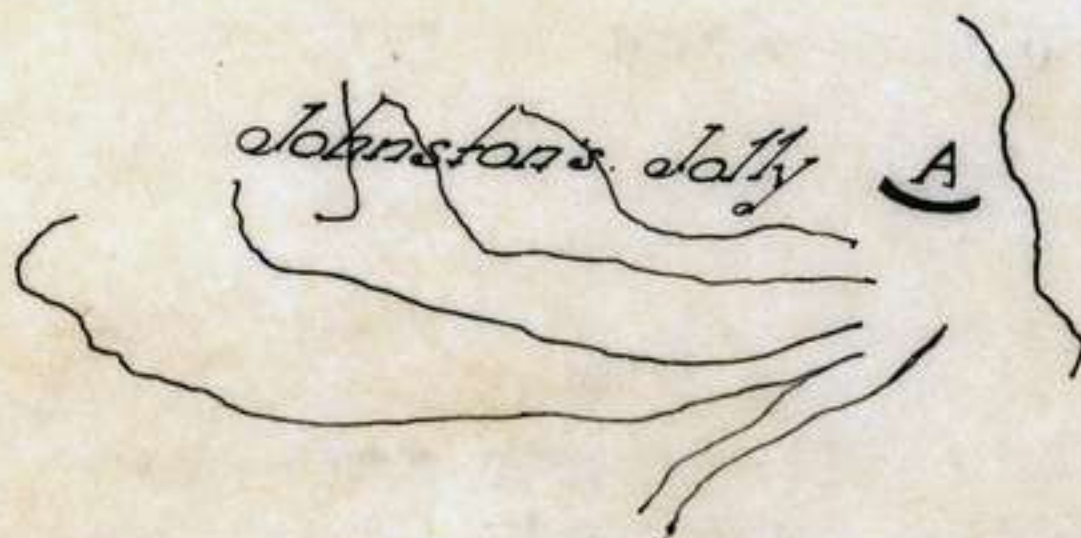 Johnston's Jolly A